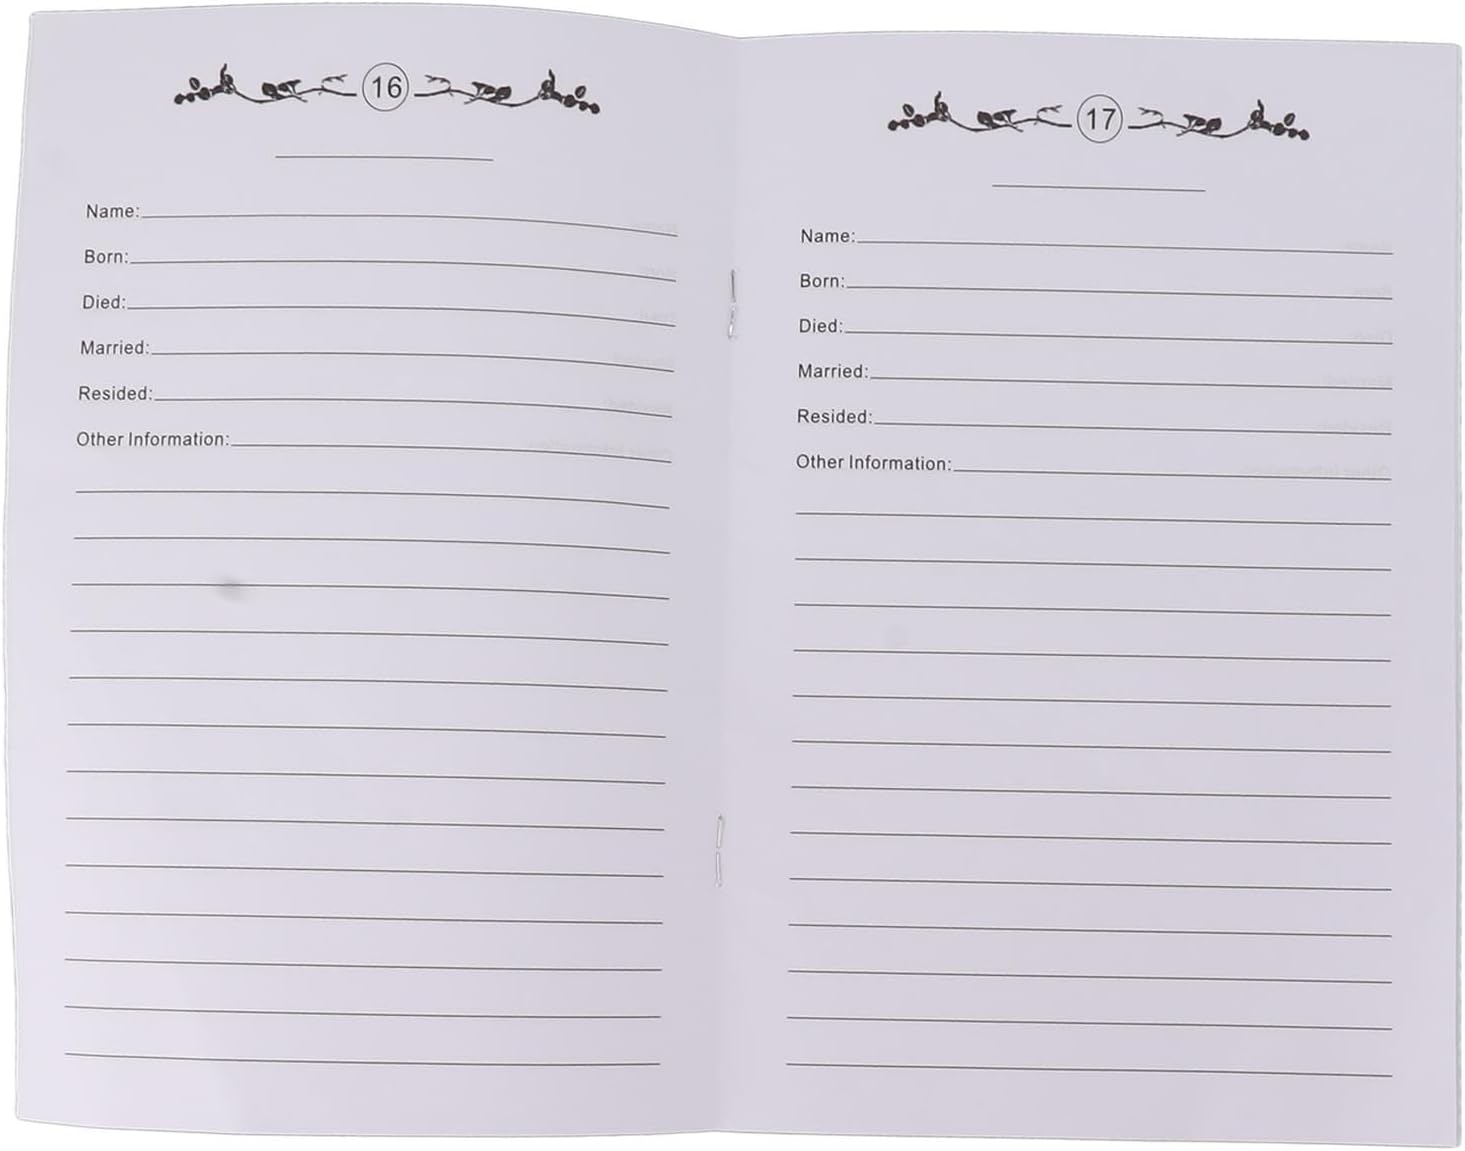 16
Name:
Born:
Died:
Married:
Resided:
Other Information:
17
Name:
Born:
Died:
Married:
Resided:
Other Information: